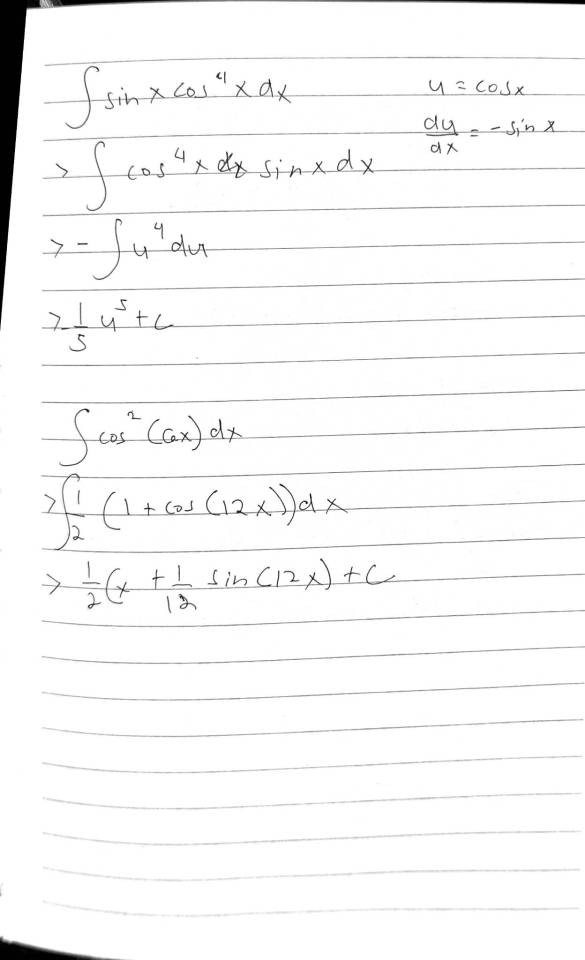 ∫ sin x cos⁴ x dx
u = cos x
du/dx = - sin x
> ∫ cos⁴ x sin x dx
> - ∫ u⁴ du
> - 1/5 u⁵ + c
∫ cos² (6x) dx
> ∫ 1/2 (1 + cos (12x)) dx
> 1/2 (x + 1/12 sin (12x) + C